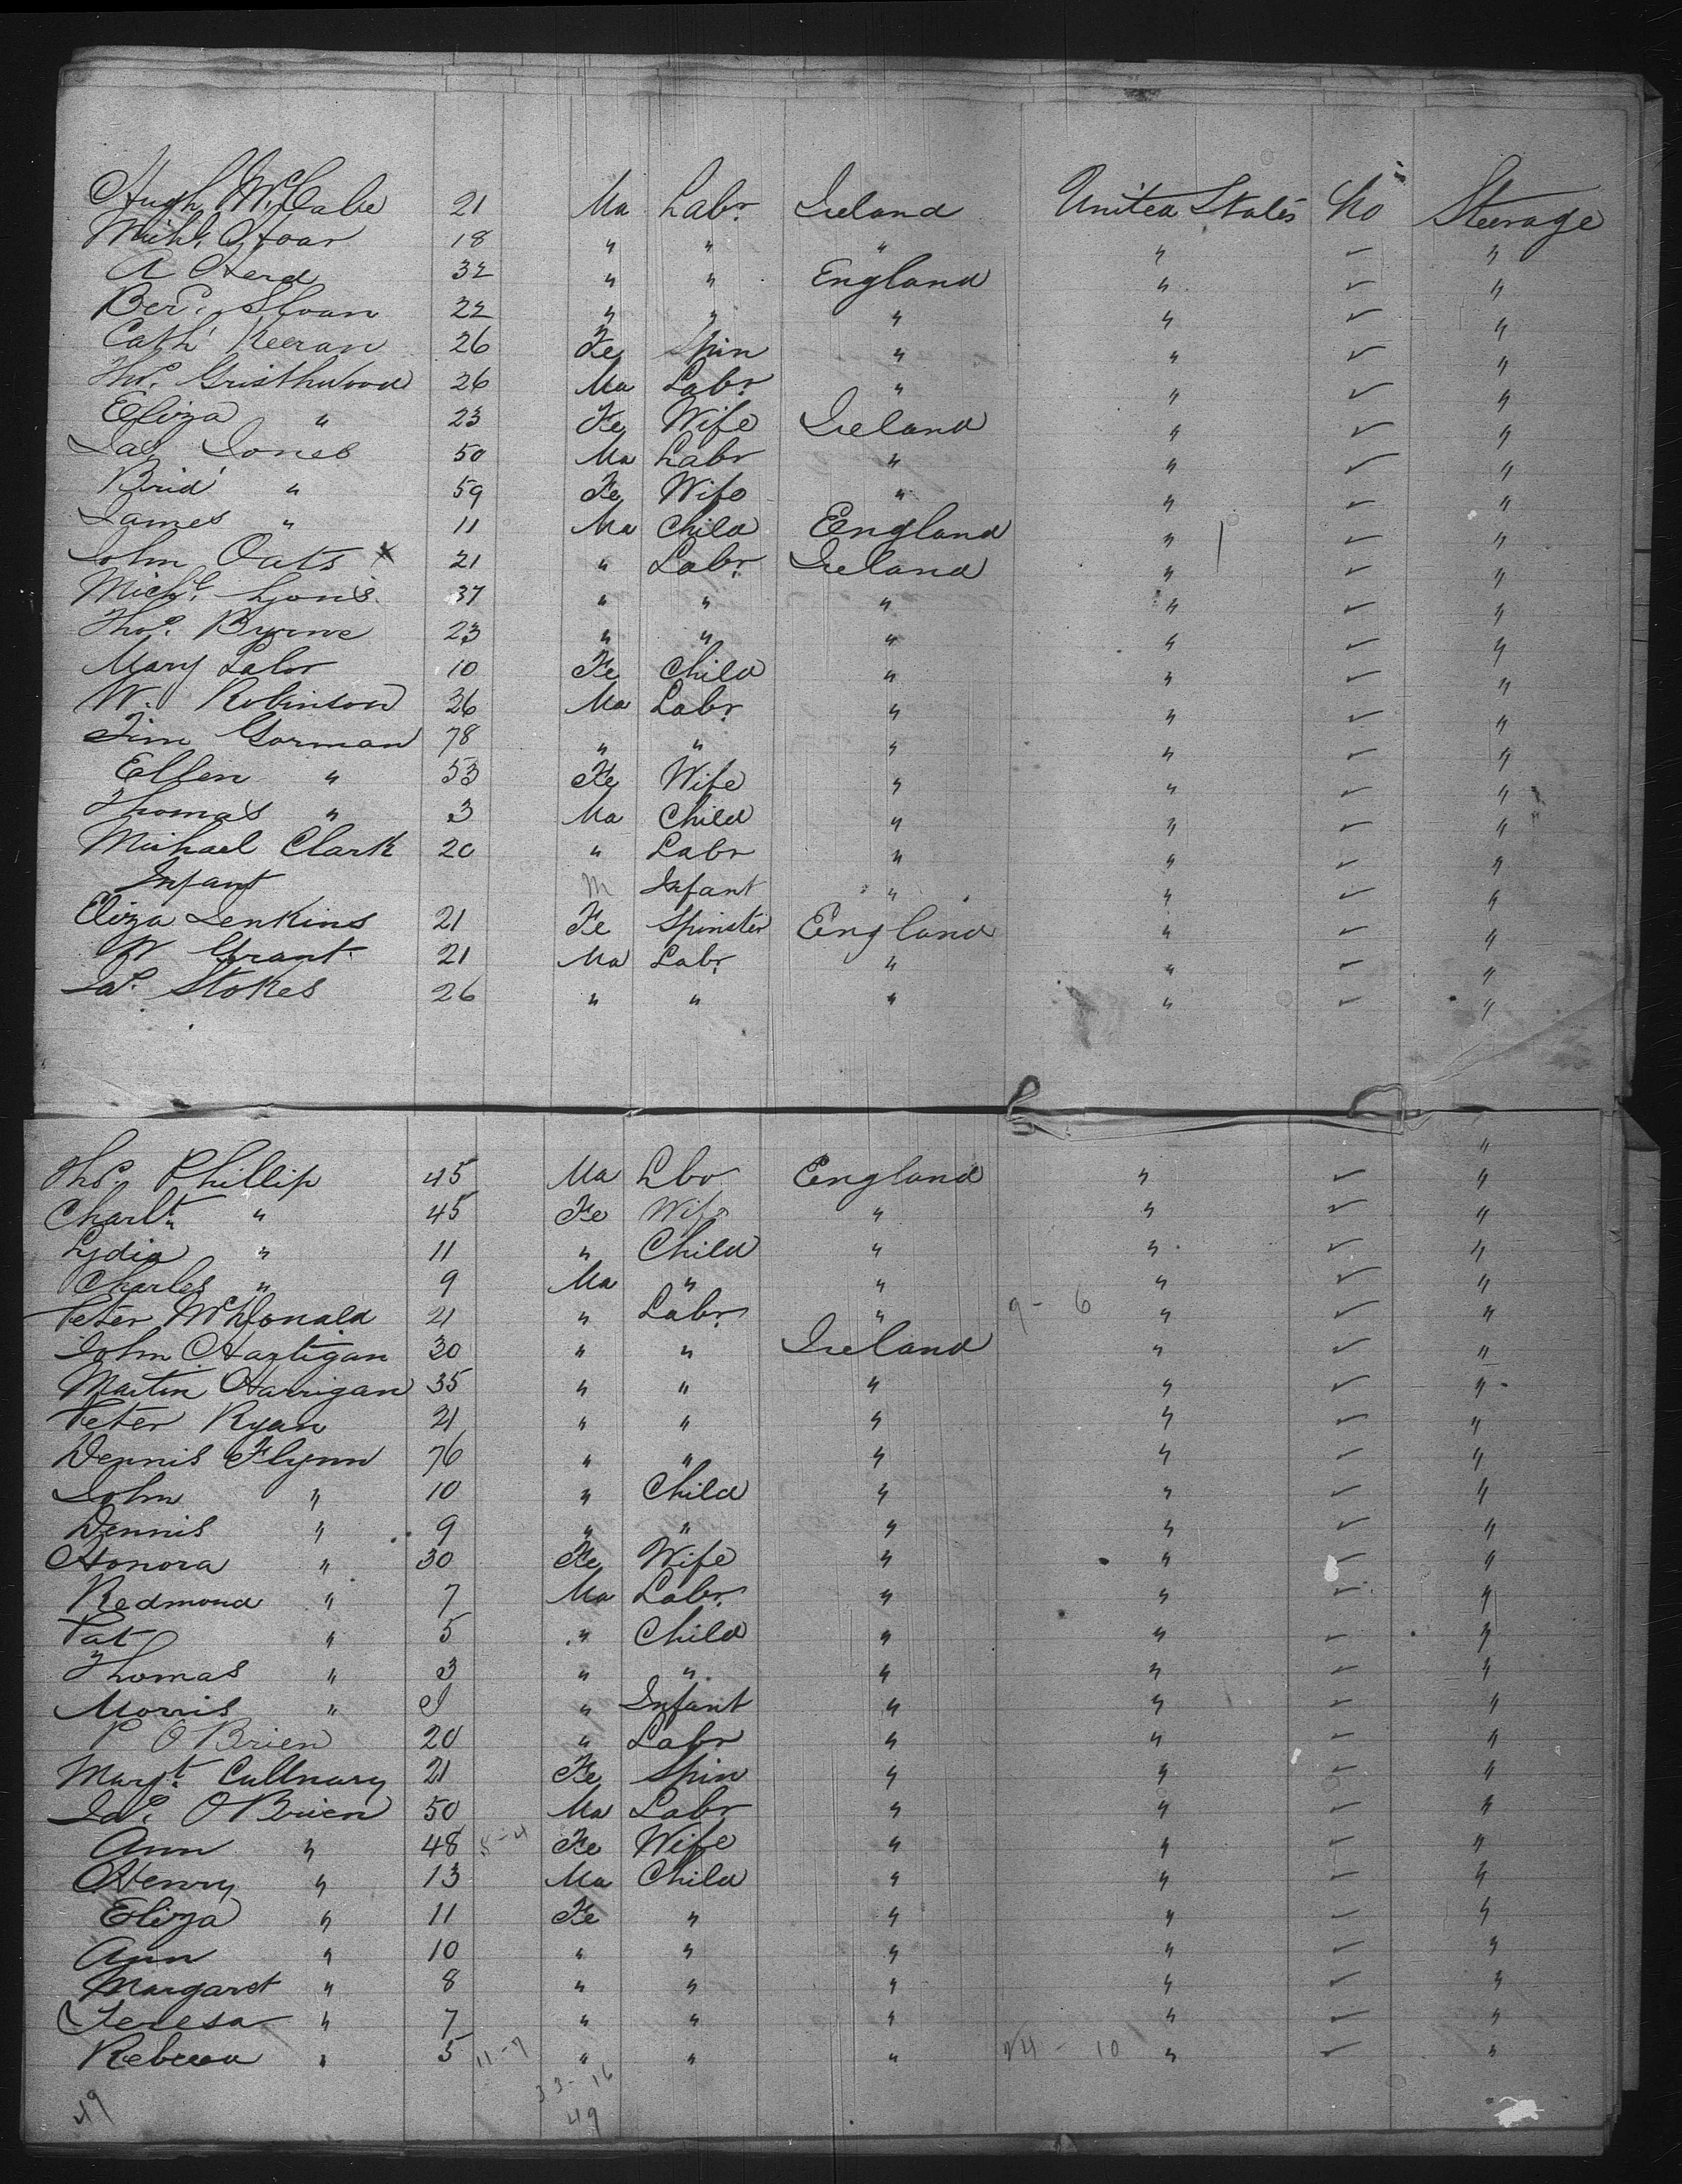 Hugh McCabe 21 Ma Labr. Ireland United States No Steerage
Michl. Hoar 18 " " " " ✓ "
A Herd 32 " " England " ✓ "
Berd. Sloan 22 " " " " ✓ "
Cath' Keeran 26 Fe Spin " " ✓ "
Thos. Gristhwood 26 Ma Labr " " ✓ "
Eliza " 23 Fe Wife Ireland " ✓ "
Jas. Jones 50 Ma Labr " " ✓ "
Brid' " 59 Fe Wife " " ✓ "
James " 11 Ma Child England " ✓ "
John Oats x 21 " Labr. Ireland " ✓ "
Michl. Lyons 37 " " " " ✓ "
Thos. Byrne 23 " " " " ✓ "
Mary Lalor 10 Fe Child " " ✓ "
W. Robinson 36 Ma Labr. " " ✓ "
Tim Gorman 78 " " " " ✓ "
Ellen " 53 Fe Wife " " ✓ "
Thomas " 3 Ma Child " " ✓ "
Michael Clark 20 " Labr " " ✓ "
Infant M Infant " " ✓ "
Eliza Jenkins 21 Fe Spinster England " ✓ "
W Grant 21 Ma Labr. " " ✓ "
Jas. Stokes 26 " " " " ✓ "
"
Thos. Phillip 45 Ma Lbr England " ✓ "
Charlt. " 45 Fe Wife " " ✓ "
Lydia " 11 " Child " " ✓ "
Charles " 9 Ma " " " ✓ "
Peter McDonald 21 " Labr. " 9 - 6 " ✓ "
John Hartigan 30 " " Ireland " ✓ "
Martin Harrigan 35 " " " " ✓ "
Peter Ryan 21 " " " " ✓ "
Dennis Flynn 76 " " " " ✓ "
John " 10 " Child " " ✓ "
Dennis " 9 " " " " ✓ "
Honora " 30 Fe Wife " " ✓ "
Redmond " 7 Ma Labr. " " ✓ "
Pat " 5 " Child " " ✓ "
Thomas " 3 " " " " ✓ "
Morris " " Infant " " ✓ "
P O'Brien 20 " Labr " " ✓ "
Margt. Cullnary 21 Fe Spin " " ✓ "
Jas. O'Brien 50 Ma Labr " " ✓ "
Ann " 48 5-4 Fe Wife " " ✓ "
Henry " 13 Ma Child " " ✓ "
Eliza " 11 Fe " " " ✓ "
Ann " 10 " " " " ✓ "
Margaret " 8 " " " " ✓ "
Teresa " 7 " " " " ✓ "
Rebecca " 5 11-7 " " " 24 - 10 " ✓ "
33-16
49 49